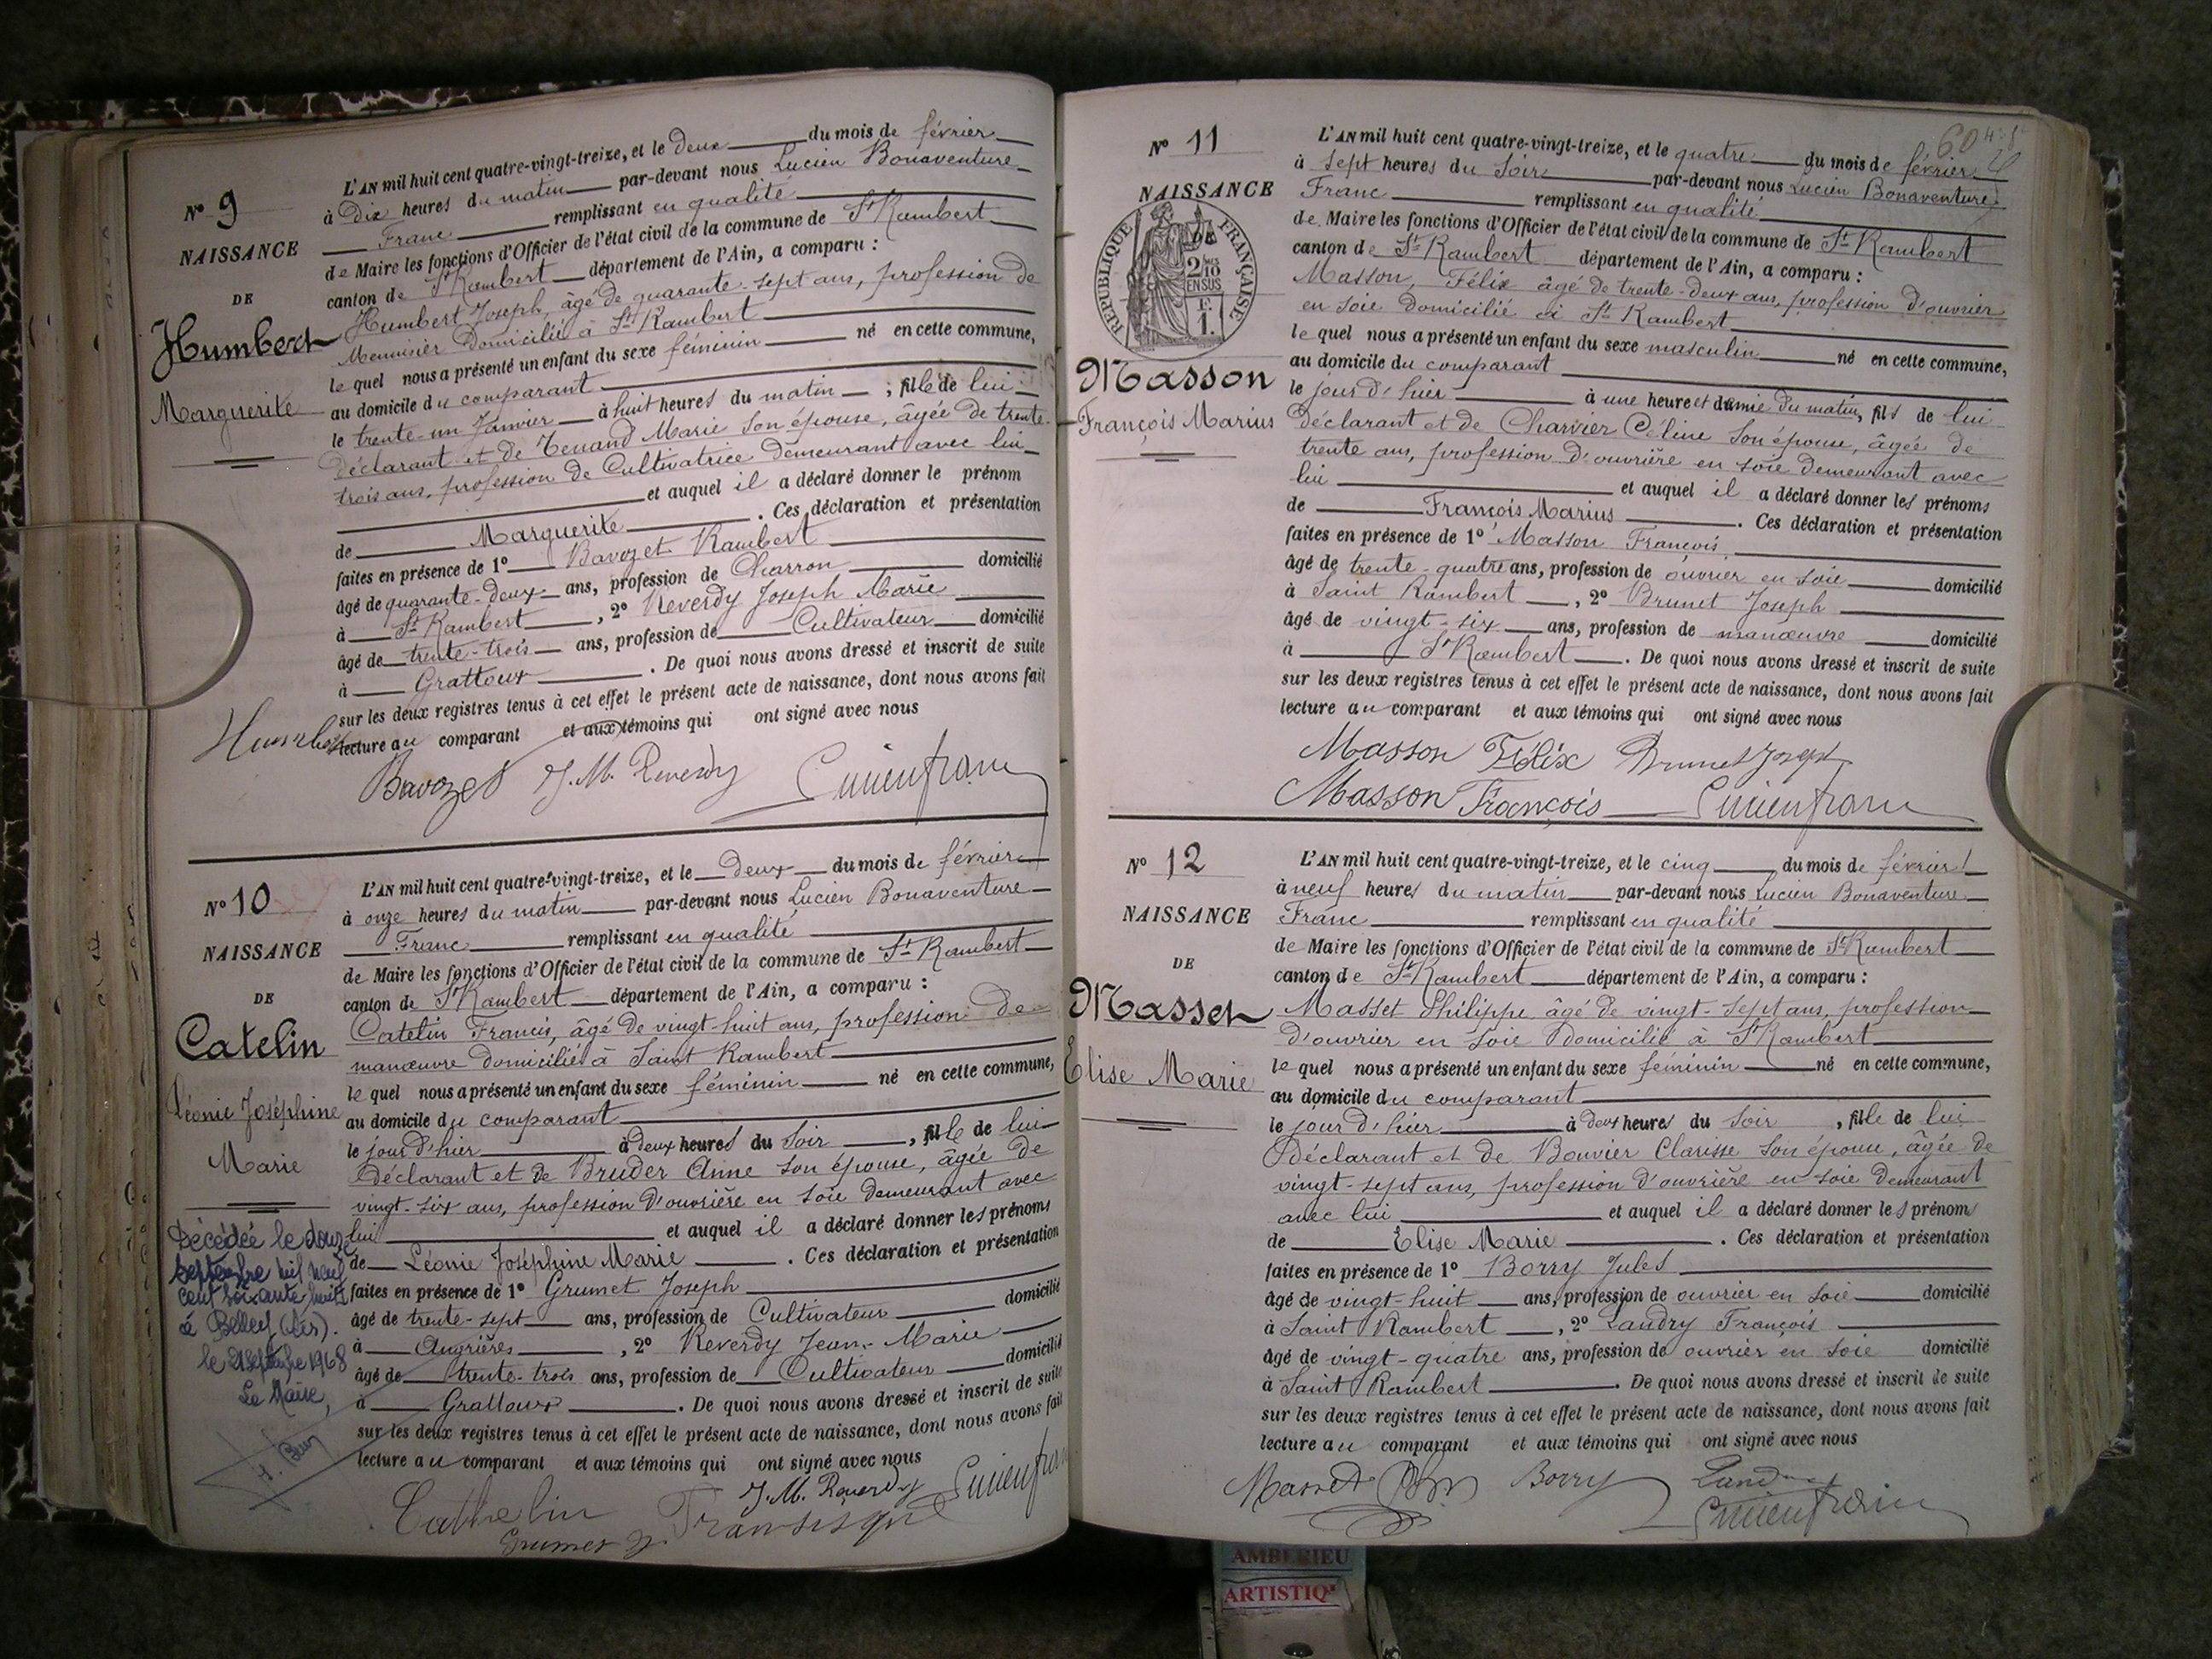 N° 9
NAISSANCE
DE
Humbert
Marguerite
L'AN mil huit cent quatre-vingt-treize, et le deux du mois de février
à dix heures du matin par-devant nous Lucien Bonaventure
Franc remplissant en qualité
de Maire les fonctions d'Officier de l'état civil de la commune de St Rambert
canton de St Rambert département de l'Ain, a comparu :
Humbert Joseph, âgé de quarante-sept ans, profession de
Menuisier domicilié à St Rambert
le quel nous a présenté un enfant du sexe féminin né en cette commune,
au domicile du comparant
le trente-un Janvier à huit heures du matin ; fille de lui
déclarant et de Tenand Marie son épouse, âgée de trente-
trois ans, profession de Cultivatrice demeurant avec lui
et auquel il a déclaré donner le prénom
de Marguerite . Ces déclaration et présentation
faites en présence de 1° Bavozet Rambert
âgé de quarante-deux ans, profession de Charron domicilié
à St Rambert , 2° Reverdy Joseph Marie
âgé de trente-trois ans, profession de Cultivateur domicilié
à Grattoux . De quoi nous avons dressé et inscrit de suite
sur les deux registres tenus à cet effet le présent acte de naissance, dont nous avons fait
lecture au comparant et aux témoins qui ont signé avec nous
Humbert
Bavozet J. M. Reverdy Lucien franc
N° 10
NAISSANCE
DE
Catelin
Léonie Joséphine
Marie
Décédée le douze
septembre mil neuf
cent soixante huit
à Belley (Ain).
le septembre 1968
Le Maire,
L'AN mil huit cent quatre-vingt-treize, et le deux du mois de février
à onze heures du matin par-devant nous Lucien Bonaventure
Franc remplissant en qualité
de Maire les fonctions d'Officier de l'état civil de la commune de St Rambert
canton de St Rambert département de l'Ain, a comparu :
Catelin Francis, âgé de vingt-huit ans, profession de
manœuvre domicilié à Saint Rambert
le quel nous a présenté un enfant du sexe féminin né en cette commune,
au domicile du comparant
le jour d'hier à deux heures du soir , fille de lui
déclarant et de Bruder Anne son épouse, âgée de
vingt-six ans, profession d'ouvrière en soie demeurant avec
lui et auquel il a déclaré donner les prénoms
de Léonie Joséphine Marie . Ces déclaration et présentation
faites en présence de 1° Grumet Joseph
âgé de trente-sept ans, profession de Cultivateur domicilié
à Angrières , 2° Reverdy Jean-Marie
âgé de trente-trois ans, profession de Cultivateur domicilié
à Grattoux . De quoi nous avons dressé et inscrit de suite
sur les deux registres tenus à cet effet le présent acte de naissance, dont nous avons fait
lecture au comparant et aux témoins qui ont signé avec nous
J. M. Reverdy Lucien franc
Cathelin Fransisque
Grumet J.
60
N° 11
NAISSANCE
DE
RÉPUBLIQUE FRANÇAISE
2/10 EN SUS
F. 1.
Masson
François Marius
L'AN mil huit cent quatre-vingt-treize, et le quatre du mois de février
à sept heures du soir par-devant nous Lucien Bonaventure
Franc remplissant en qualité
de Maire les fonctions d'Officier de l'état civil de la commune de St Rambert
canton de St Rambert département de l'Ain, a comparu :
Masson, Félix âgé de trente-deux ans, profession d'ouvrier
en soie domicilié à St Rambert
le quel nous a présenté un enfant du sexe masculin né en cette commune,
au domicile du comparant
le jour d'hier à une heure et demie du matin, fils de lui
déclarant et de Charvier Céline son épouse, âgée de
trente ans, profession d'ouvrière en soie demeurant avec
lui et auquel il a déclaré donner les prénoms
de François Marius . Ces déclaration et présentation
faites en présence de 1° Masson François
âgé de trente-quatre ans, profession de ouvrier en soie domicilié
à Saint Rambert , 2° Brunet Joseph
âgé de vingt-six ans, profession de manœuvre domicilié
à St Rambert . De quoi nous avons dressé et inscrit de suite
sur les deux registres tenus à cet effet le présent acte de naissance, dont nous avons fait
lecture au comparant et aux témoins qui ont signé avec nous
Masson Félix Brunet Joseph
Masson François Lucien franc
N° 12
NAISSANCE
DE
Masset
Elise Marie
L'AN mil huit cent quatre-vingt-treize, et le cinq du mois de février
à neuf heures du matin par-devant nous Lucien Bonaventure
Franc remplissant en qualité
de Maire les fonctions d'Officier de l'état civil de la commune de St Rambert
canton de St Rambert département de l'Ain, a comparu :
Masset Philippe âgé de vingt-sept ans, profession
d'ouvrier en soie domicilié à St Rambert
le quel nous a présenté un enfant du sexe féminin né en cette commune,
au domicile du comparant
le jour d'hier à deux heures du soir , fille de lui
déclarant et de Bouvier Clarisse son épouse, âgée de
vingt-sept ans, profession d'ouvrière en soie demeurant
avec lui et auquel il a déclaré donner les prénoms
de Elise Marie . Ces déclaration et présentation
faites en présence de 1° Borry Jules
âgé de vingt-huit ans, profession de ouvrier en soie domicilié
à Saint Rambert , 2° Landry François
âgé de vingt-quatre ans, profession de ouvrier en soie domicilié
à Saint Rambert . De quoi nous avons dressé et inscrit de suite
sur les deux registres tenus à cet effet le présent acte de naissance, dont nous avons fait
lecture au comparant et aux témoins qui ont signé avec nous
Masset Borry Landry
Lucien franc
AMBERIEU
ARTISTIQ